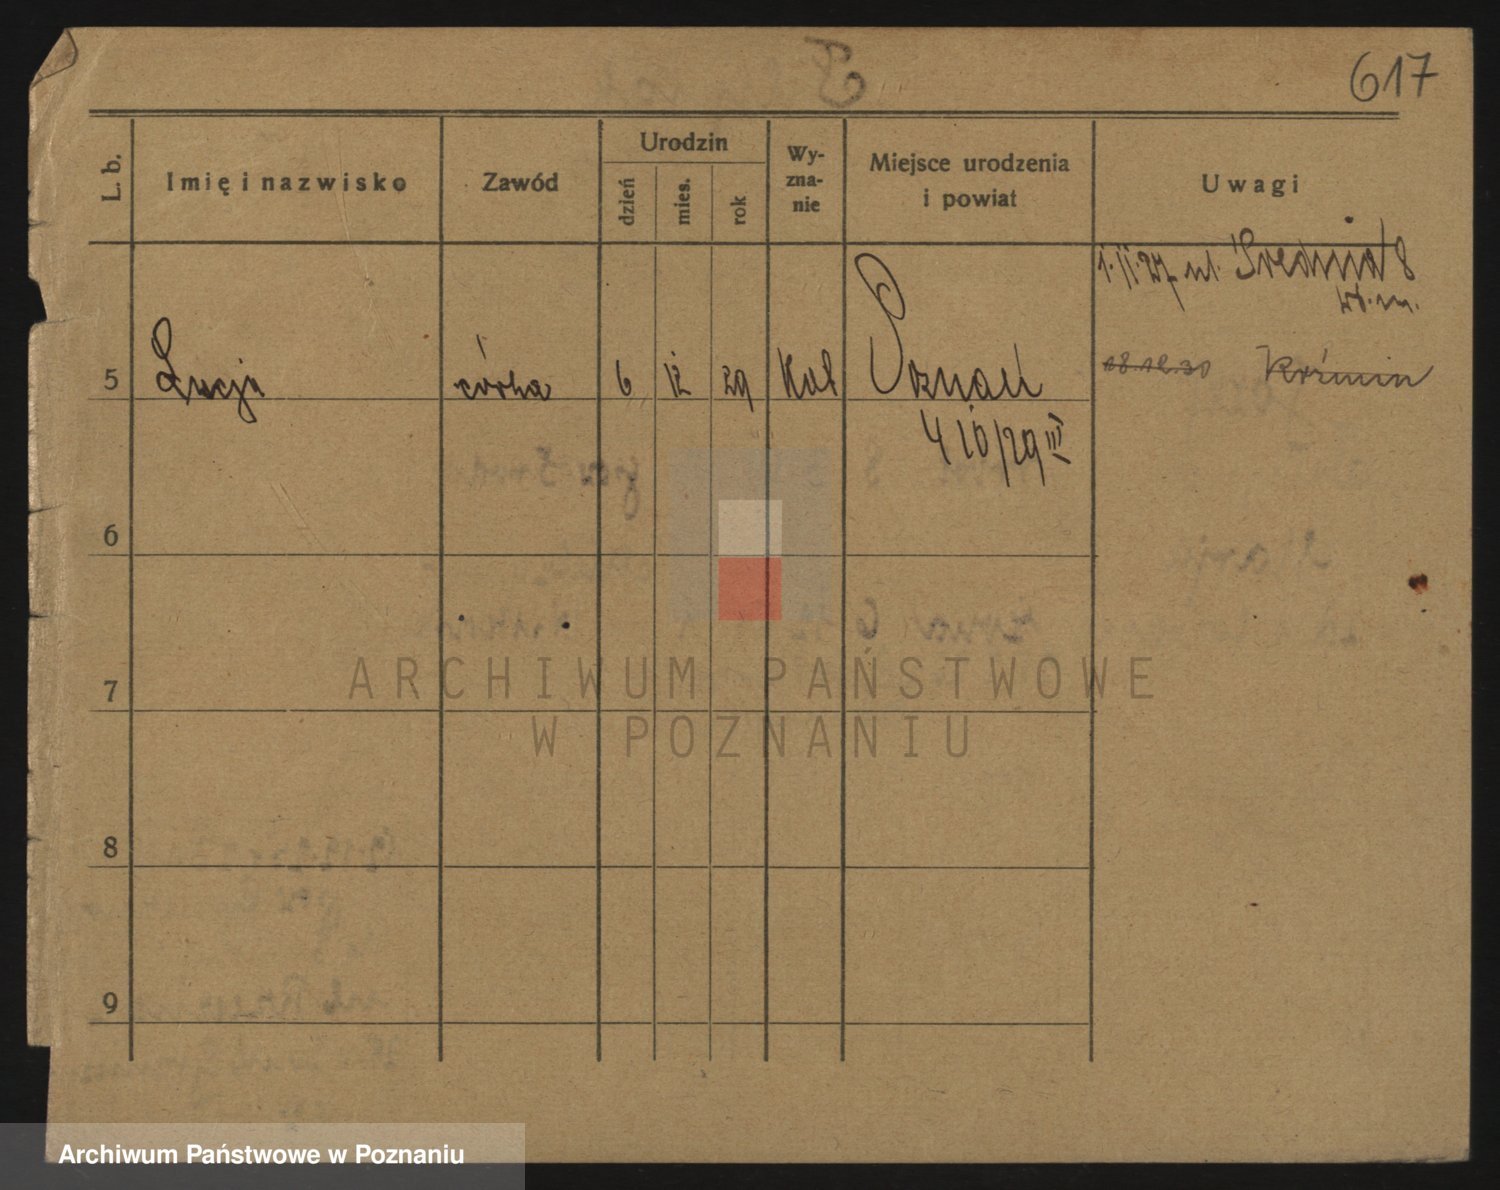 617
L. b.
Imię i nazwisko
Zawód
Urodzin
dzień
mies.
rok
Wy-
zna-
nie
Miejsce urodzenia
i powiat
Uwagi
1.11.27 ul. Średnia 8
5
Łucja
córka
6
12
29
Kat
Poznań
410/29 III
18.12.30
6
7
8
9
ARCHIWUM PAŃSTWOWE
W POZNANIU
Archiwum Państwowe w Poznaniu